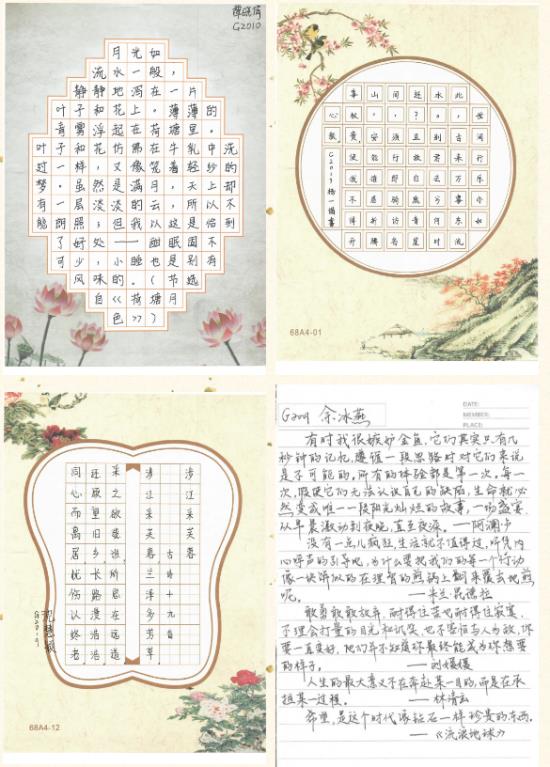 G2010
月光如
流水一般，
静静地泻在一片
叶子和花上。薄薄的
青雾浮起在荷塘里。
叶子和花仿佛在牛乳中洗
过一样，又像笼着轻纱的
梦。虽然是满月，天上却
有一层淡淡的云，所以不
能朗照，但我以为这恰是到
了好处——酣眠固不
可少，小睡也是别有
风味的。（节选
自《荷塘月
色》）
世间行乐亦如
此，古来万事东流
水。别君去兮何时
还？且放白鹿青崖
间，须行即骑访名
山。安能摧眉折腰
事权贵，使我不得开
心颜。
G2013 杨一儒書
68A4-01
涉江采芙蓉
古诗十九首
涉江采芙蓉，兰泽多芳草
采之欲遗谁，所思在远道
还顾望旧乡，长路漫浩浩
同心而离居，忧伤以终老
68A4-12
DATE:
MEMBER:
PLACE:
G2009 余冰燕
有时我很嫉妒金鱼，它们其实只有几
秒钟的记忆，遵循一段思路对于它们来说
是不可能的。所有的体验都是第一次。每一
次，假使它们无法认识自己的缺陷，生命就必
然变成唯一一段阳光灿烂的故事，一场盛宴
从早晨激动到夜晚，直至夜深。——阿澜·少
没有一点儿疯狂，生活就不值得过，听凭内
心呼声的引导吧，为什么要把我们的每一个行动
像一块饼似的在理智的煎锅上翻来覆去地煎
呢。——米兰·昆德拉
敢勇敢敢放弃，耐得住苦也耐得住寂寞，
不理会打量的目光和讥笑，也不害怕与人为敌，你
要一直美好，
的样子。——刘媛媛
人生的最大意义不在奔赴某一目的，而是在承
担某一过程。——林清玄
希望，是这个时代像钻石一样珍贵的东西。
——《流浪地球》